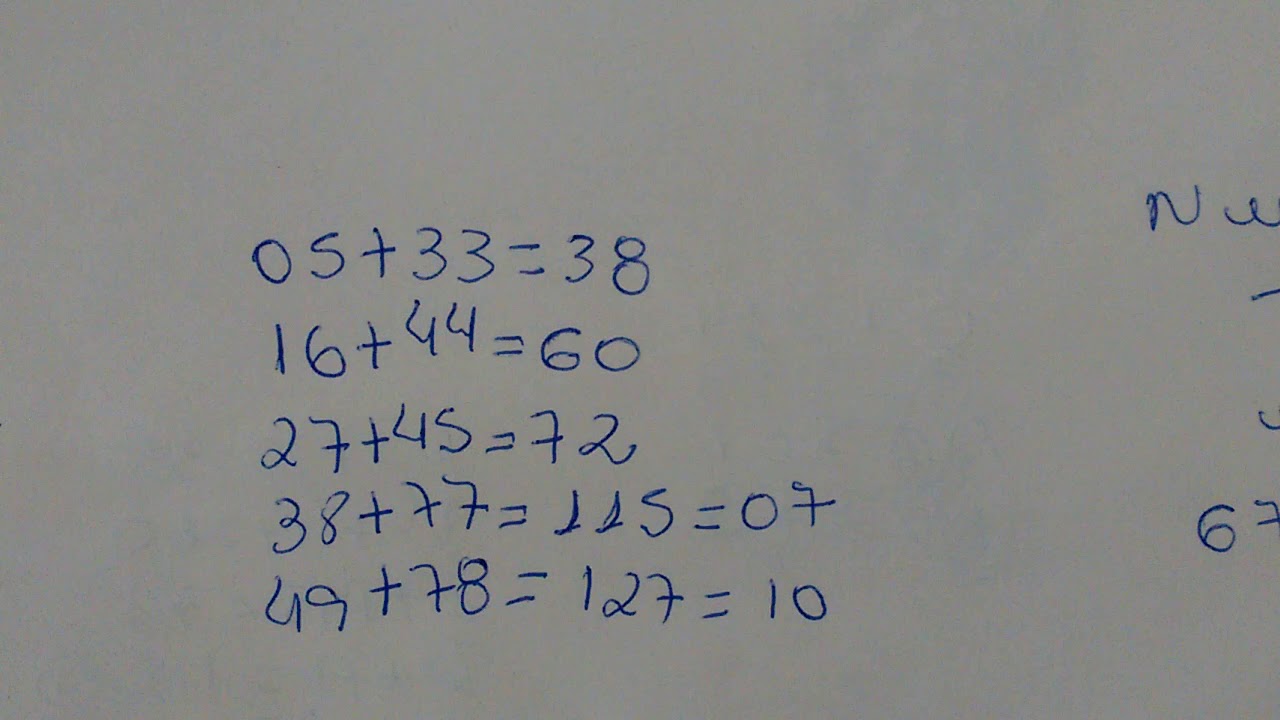 05+33=38
16+44=60
27+45=72
38+77=115=07
49+78=127=10
67